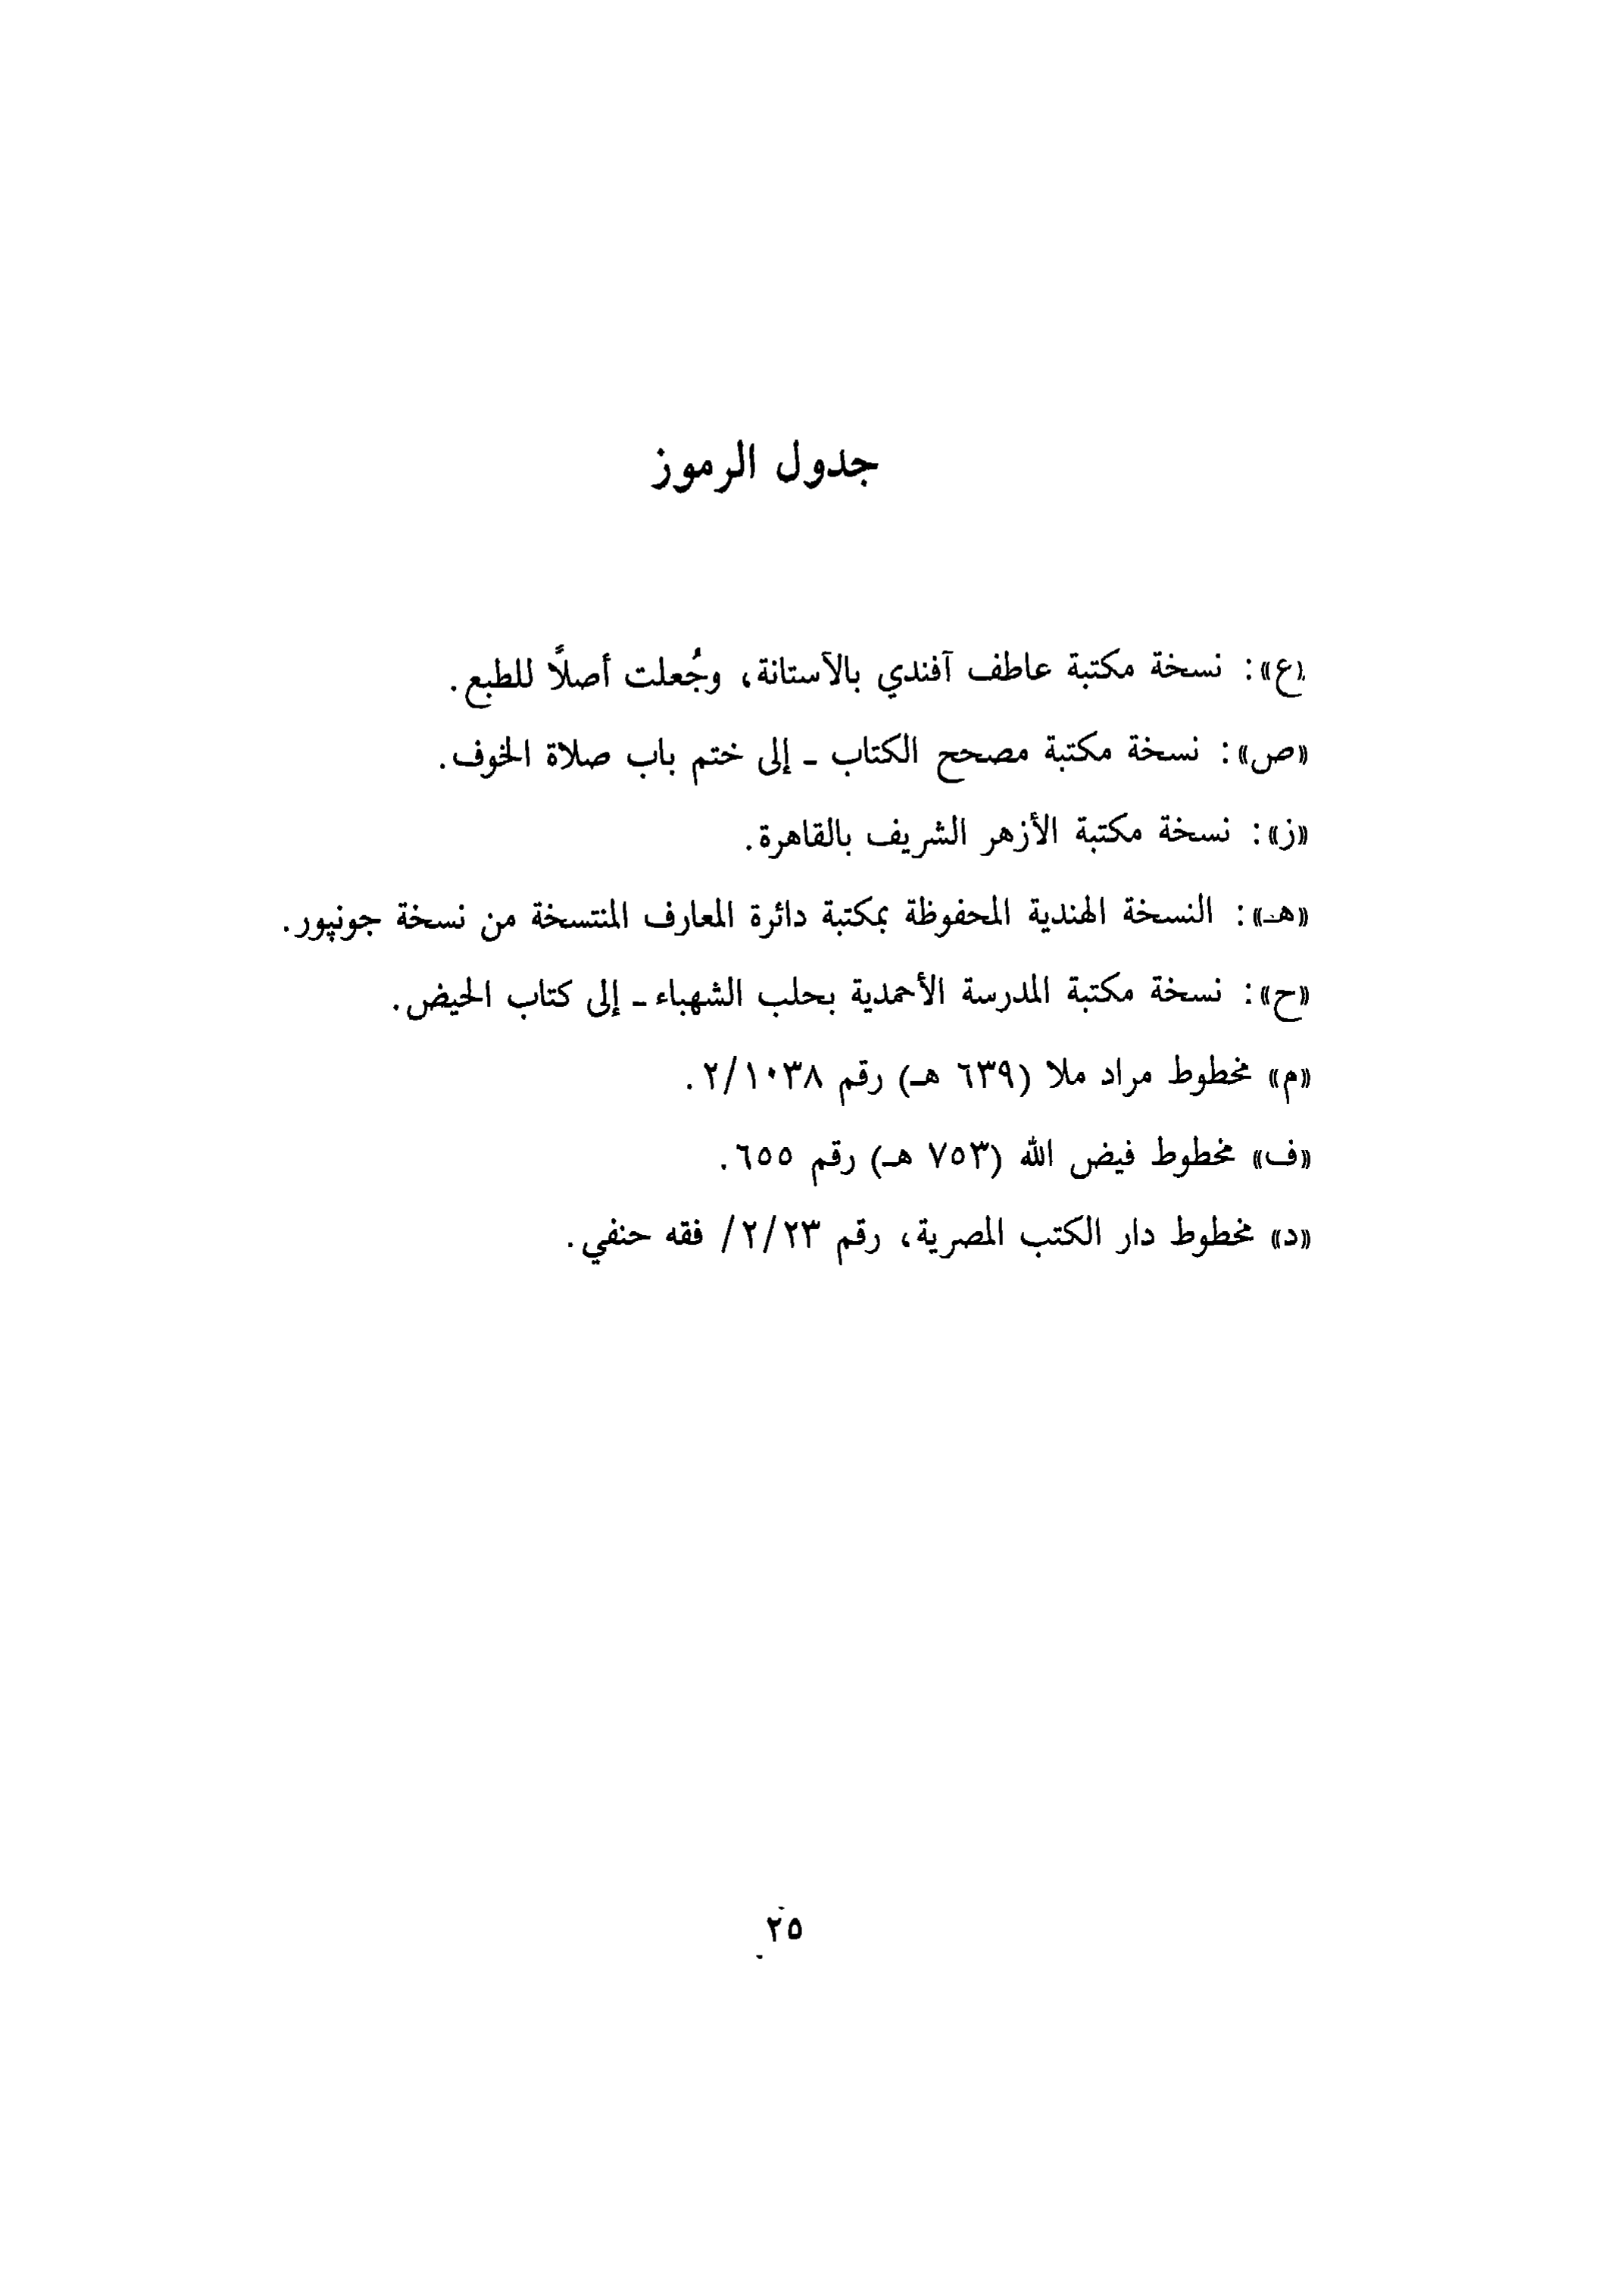 جدول الرموز
«ع»: نسخة مكتبة عاطف آفندي بالآستانة، وجُعلت أصلاً للطبع.
«ص»: نسخة مكتبة مصحح الكتاب ـ إلى ختم باب صلاة الخوف.
«ز»: نسخة مكتبة الأزهر الشريف بالقاهرة.
«هـ»: النسخة الهندية المحفوظة بمكتبة دائرة المعارف المنتسخة من نسخة جونپور.
«ح»: نسخة مكتبة المدرسة الأحمدية بحلب الشهباء ـ إلى كتاب الحيض.
«م» مخطوط مراد ملا (٦٣٩ هـ) رقم ٢/١٠٣٨.
«ف» مخطوط فيض الله (٧٥٣ هـ) رقم ٦٥٥.
«د» مخطوط دار الكتب المصرية، رقم ٢/٢٣/ فقه حنفي.
٢٥